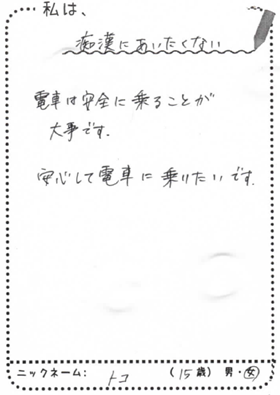 私は、
痴漢にあいたくない
電車は安全に乗ることが
大事です.
安心して電車に乗りたいです.
ニックネーム: トコ (15歳) 男・女